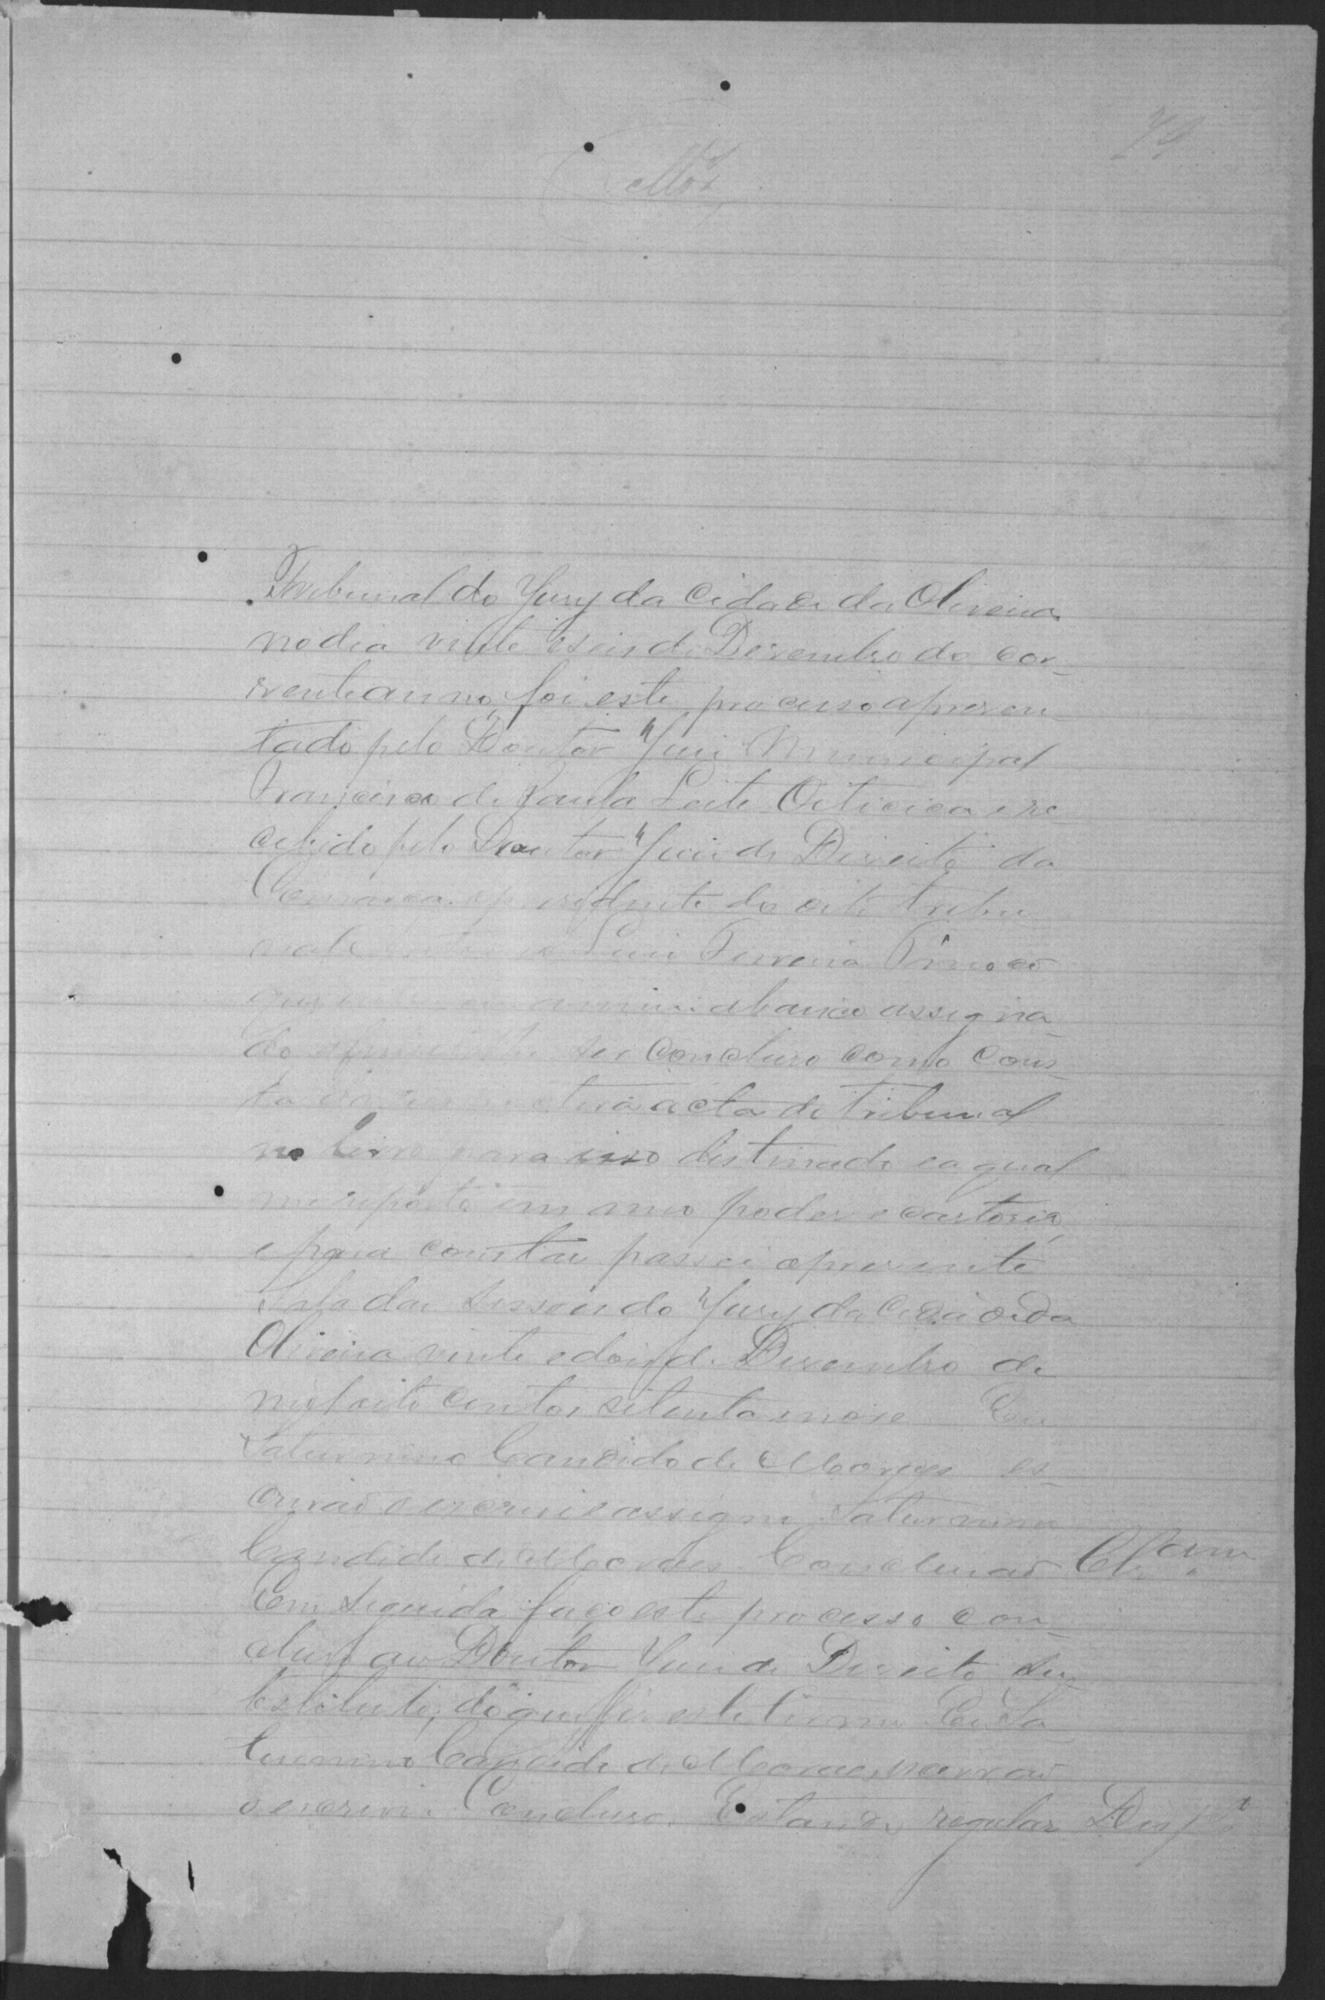 79
Tribunal do Jury da Cidade da Oliveira
no dia vinte e seis de Dezembro do cor-
rente anno foi este processo apresen
tado pelo Doutor Juiz Municipal
Francisco de Paula Leite Oiticica e re
cebido pelo Doutor Juiz de Direito da
Comarca e presidente do dito tribu
nal Luiz Ferreira Tinoco
a mim abaixo assigna
do ser concluso como cons-
ta acta do tribunal
no livro para isso destinado e a qual
me reporto em meu poder e cartorio,
e para constar passei a presente
Sala das Sessoens do Jury da Cidade da
Oliveira vinte e dois de Dezembro de
mil oito centos setenta e nove Eu
Saturnino Candido de Moraes es-
crivão o escrevi e assigno Saturnino
Candido de Moraes Conclusão
Em seguida faço este processo con-
cluso ao Doutor Juiz de Direito Su
bstituto, do que fiz este termo Eu Sa
turnino Candido de Moraes escrivão
o escrevi. Concluso. Estando regular